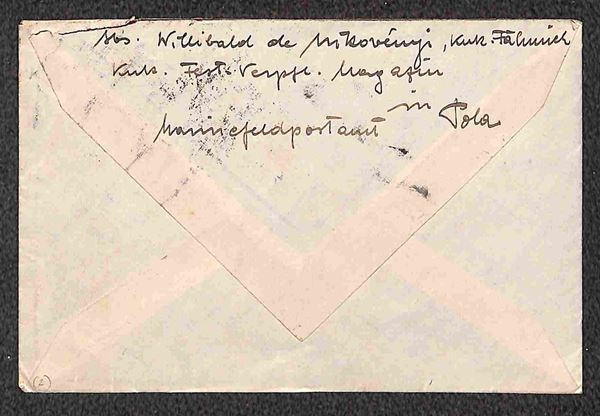 Abs. Willibald de Mikovényi, Kuk. Fähnrich
Kuk. Fest. Verpfl. Magazin
in Pola
Marinefeldpostamt
(2)